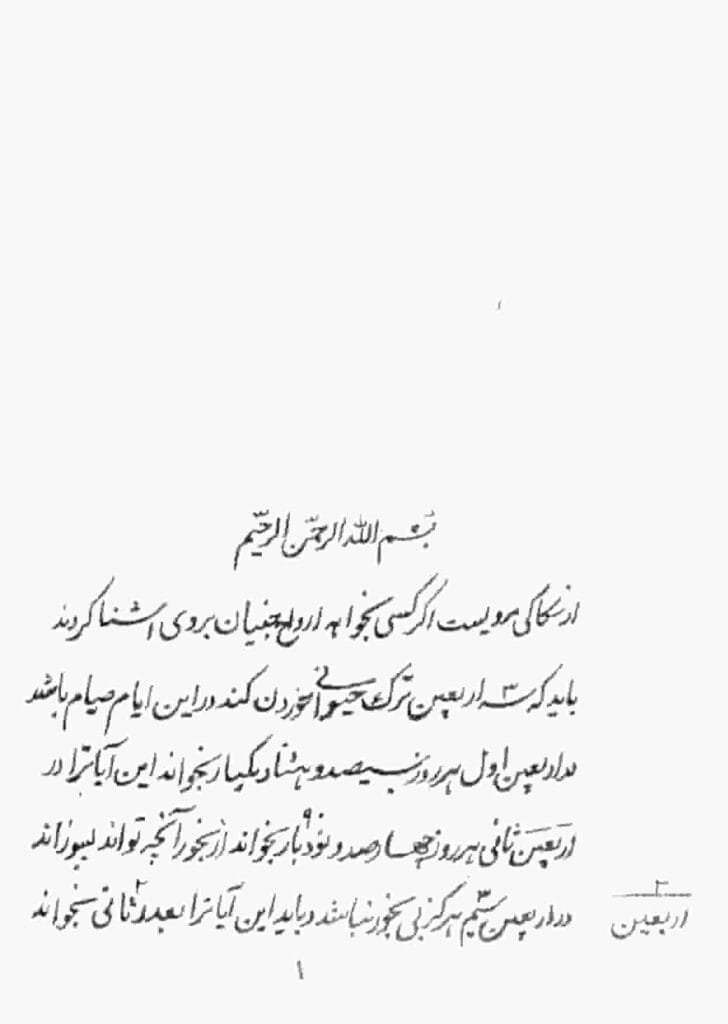 بسم الله الرحمن الرحیم
از سکاکی مرویست اگر کسی بخواهد ارواح جنیان بروی اشنا کردند
باید که سه ۳ اربعین ترک حیوانی خوردن کند در این ایام صیام باشد
در اربعین اول هر روز سیصد و هشتاد یکبار بخواند این آیاترا در
اربعین ثانی هر روز چهار صد و نود ۹ بار بخواند از بخور آنچه تواند بسوزاند
در اربعین سیم ۳ هرگز بی بخور نباشد و باید این آیاترا بعدد ثانی ۲ بخواند
۲
اربعین
۱